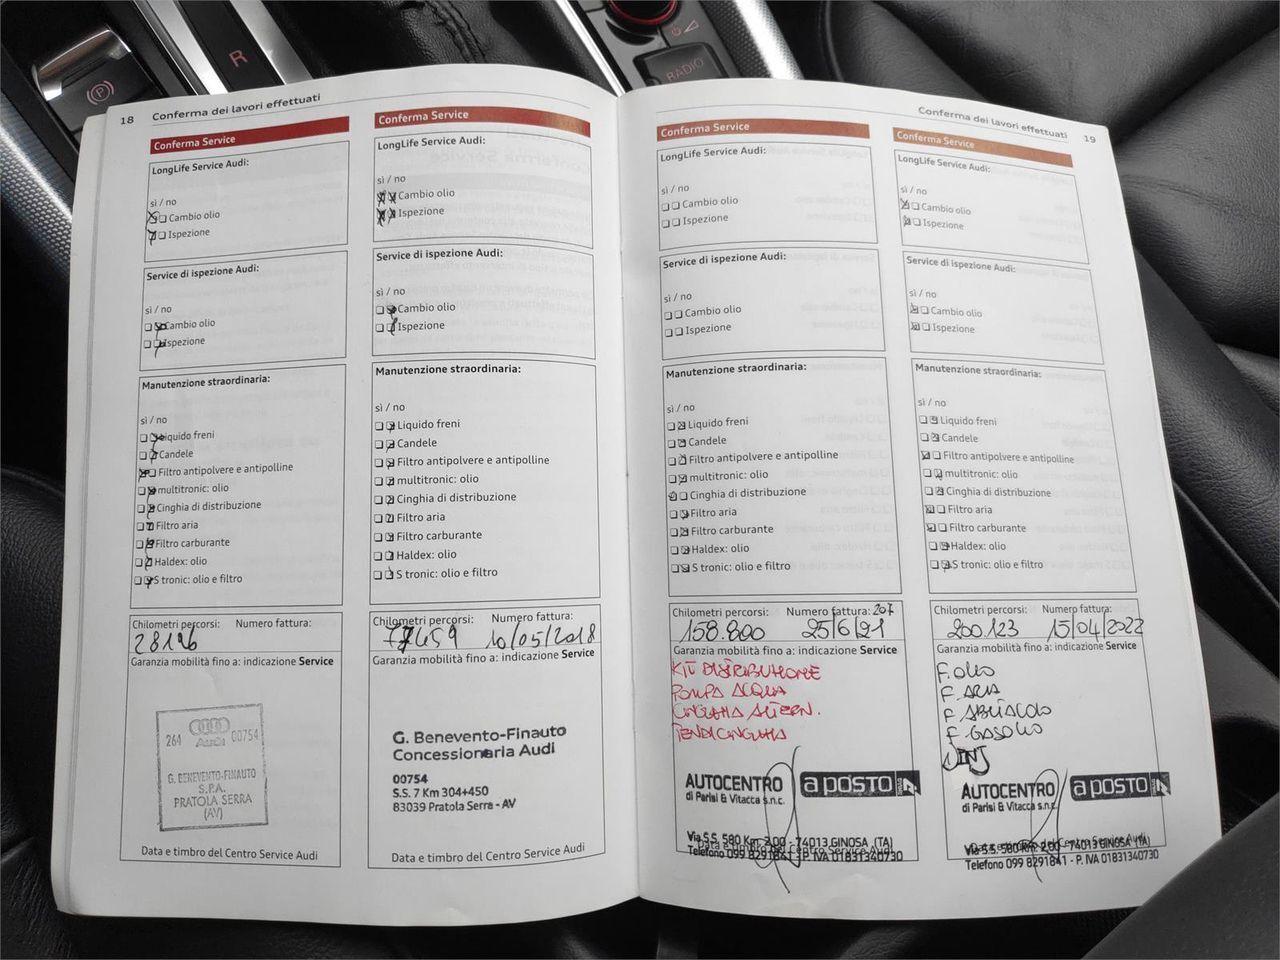 R
RADIO
18 Conferma dei lavori effettuati
Conferma Service
LongLife Service Audi:
sì / no
Cambio olio
Ispezione
Service di ispezione Audi:
sì / no
Cambio olio
Ispezione
Manutenzione straordinaria:
sì / no
Liquido freni
Candele
Filtro antipolvere e antipolline
multitronic: olio
Cinghia di distribuzione
Filtro aria
Filtro carburante
Haldex: olio
S tronic: olio e filtro
Chilometri percorsi: Numero fattura:
28126
Garanzia mobilità fino a: indicazione Service
264 Audi 00754
G. BENEVENTO-FINAUTO
S.P.A.
PRATOLA SERRA
(AV)
Data e timbro del Centro Service Audi
Conferma Service
LongLife Service Audi:
sì / no
Cambio olio
Ispezione
Service di ispezione Audi:
sì / no
Cambio olio
Ispezione
Manutenzione straordinaria:
sì / no
Liquido freni
Candele
Filtro antipolvere e antipolline
multitronic: olio
Cinghia di distribuzione
Filtro aria
Filtro carburante
Haldex: olio
S tronic: olio e filtro
Chilometri percorsi: Numero fattura:
77459 10/05/2018
Garanzia mobilità fino a: indicazione Service
G. Benevento-Finauto
Concessionaria Audi
00754
S.S. 7 Km 304+450
83039 Pratola Serra - AV
Data e timbro del Centro Service Audi
Conferma dei lavori effettuati 19
Conferma Service
LongLife Service Audi:
sì / no
Cambio olio
Ispezione
Service di ispezione Audi:
sì / no
Cambio olio
Ispezione
Manutenzione straordinaria:
sì / no
Liquido freni
Candele
Filtro antipolvere e antipolline
multitronic: olio
Cinghia di distribuzione
Filtro aria
Filtro carburante
Haldex: olio
S tronic: olio e filtro
Chilometri percorsi: Numero fattura: 207
158.800 25/6/21
Garanzia mobilità fino a: indicazione Service
KIT DISTRIBUZIONE
POMPA ACQUA
CINGHIA ALTERN.
TENDICINGHIA
AUTOCENTRO a posto
di Parisi & Vitacca s.n.c.
Via S.S. 580 Km. 2,00 - 74013 GINOSA (TA)
Data e timbro del Centro Service Audi
Telefono 099 8291841 - P. IVA 01831340730
Conferma Service
LongLife Service Audi:
sì / no
Cambio olio
Ispezione
Service di ispezione Audi:
sì / no
Cambio olio
Ispezione
Manutenzione straordinaria:
sì / no
Liquido freni
Candele
Filtro antipolvere e antipolline
multitronic: olio
Cinghia di distribuzione
Filtro aria
Filtro carburante
Haldex: olio
S tronic: olio e filtro
Chilometri percorsi: Numero fattura:
200.123 15/04/2022
Garanzia mobilità fino a: indicazione Service
F. OLIO
F. ARIA
F. ABITACOLO
F. GASOLIO
AUTOCENTRO a posto
di Parisi & Vitacca s.n.c.
Via S.S. 580 Km. 2,00 - 74013 GINOSA (TA)
Data e timbro del Centro Service Audi
Telefono 099 8291841 - P. IVA 01831340730